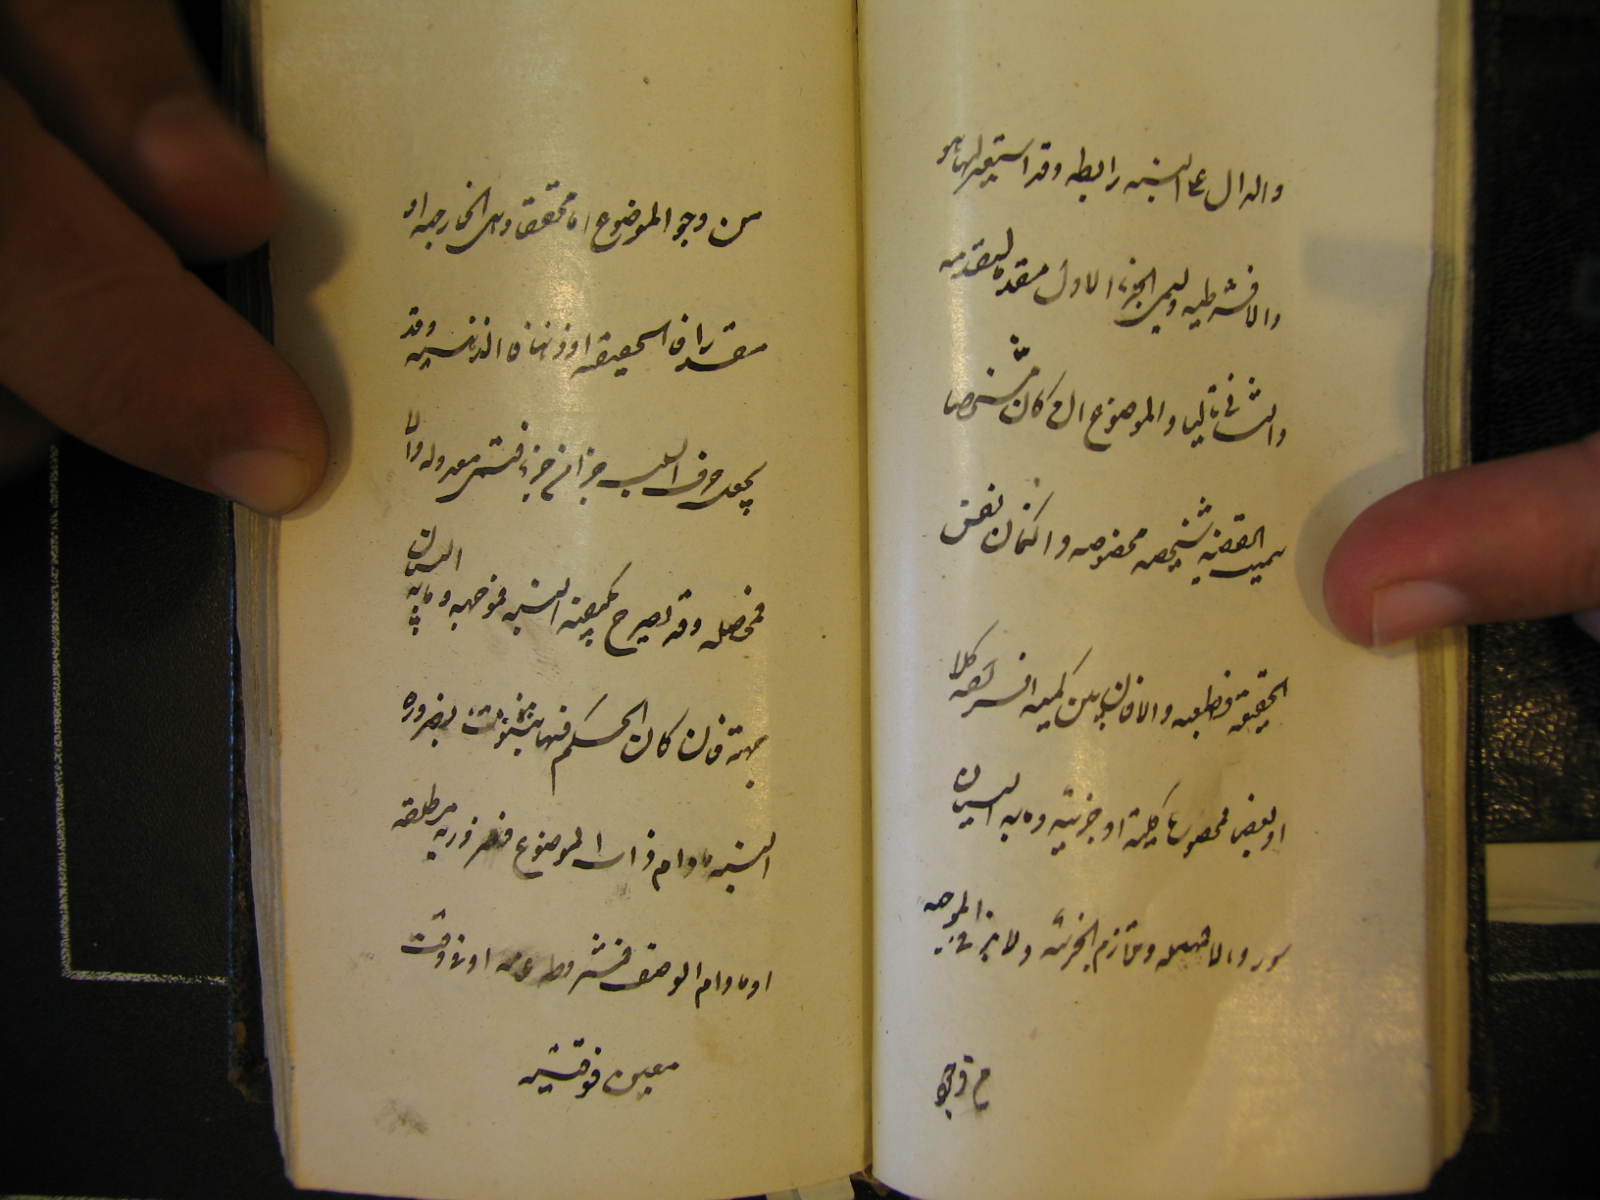 والدال على النسبة رابطه وقد استعير لها هو
والا فشرطيه ويسمى الجزء الاول مقدما لتقدمه
والثانى تاليا والموضوع ان كان مشخصا
سميت القضيه شخصيه مخصوصه وان كان نفس
الحقيقة فطبعيه والا فان بين كميه افراده كلا
او بعضا فمحصوره كلية او جزئيه وما به البيان
سور والا فمهمله وتلازم الجزئيه ولا بد فى الموجبه
من وجود الموضوع اما محققا وهى الخارجيه او
مقدرا فالحقيقيه او ذهنا فالذهنيه وقد
يجعل حرف السلب جزا من جزء فتسمى معدوله والا
فمحصله وقد يصرح بكيفية النسبه فموجهه وما به البيان
جهة فان كان الحكم فيها بضروره
النسبه مادام ذات الموضوع فضروريه مطلقه
او مادام الوصف فمشروطه عامه او فى وقت
معين فوقتيه